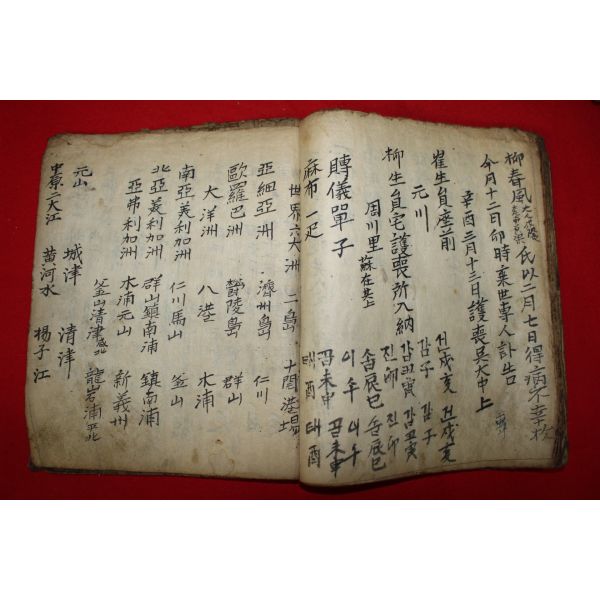 柳春風
氏以二月七日得病不幸於
今月十二日卯時棄世專人訃告
辛酉三月十三日護喪吳大中上
崔生員座前
元川
柳生員宅護喪所入納
周川里
賻儀單子
麻布一疋
건戌亥 건戌亥
감子 감子
감丑寅 감丑寅
진卯 진卯
손辰巳 손辰巳
이午 이午
곰未申 곰未申
태酉 태酉
世界六大洲 二島 十開港場
亞細亞洲 濟州島 仁川
歐羅巴洲 鬱陵島 群山
大洋洲 八港 木浦
南亞美利加洲 仁川馬山 釜山
北亞美利加洲 群山鎮南浦 鎮南浦
亞弗利加洲 木浦元山 新義州
釜山清津 龍岩浦
元山 城津 清津
中原二大江 黃河水 楊子江